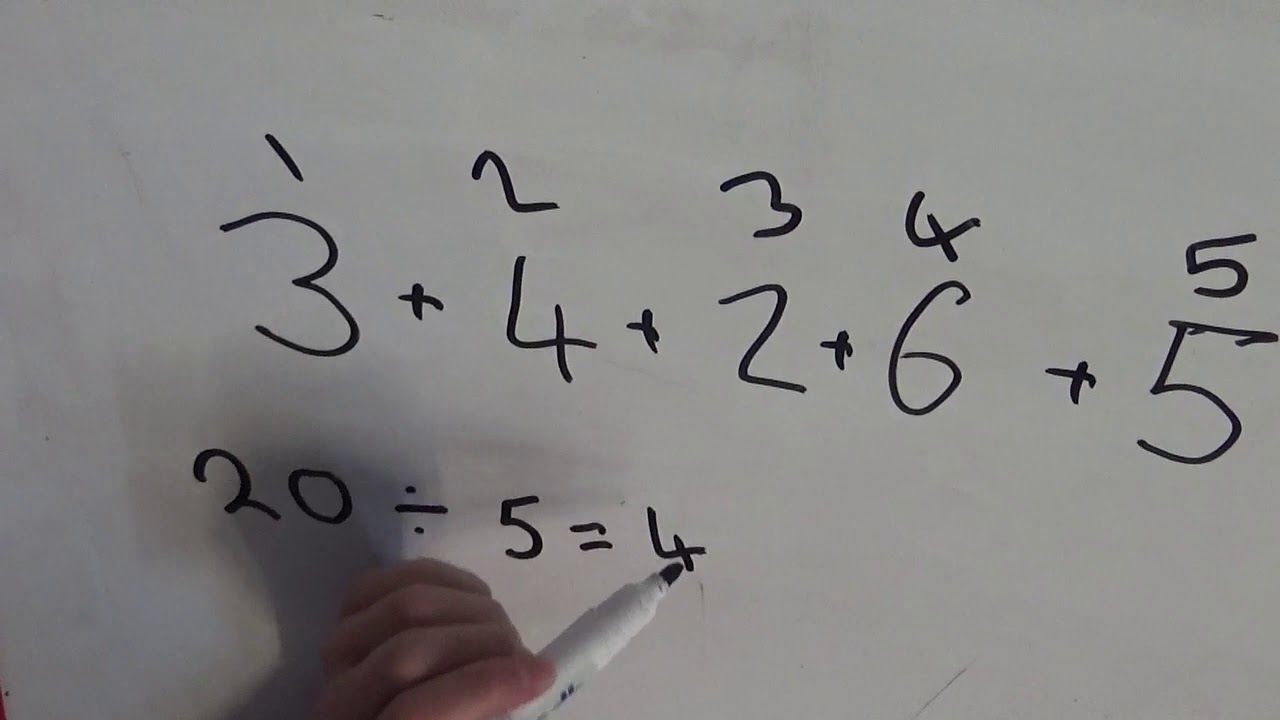 1 2 3 4 5
3 + 4 + 2 + 6 + 5
20 ÷ 5 = 4